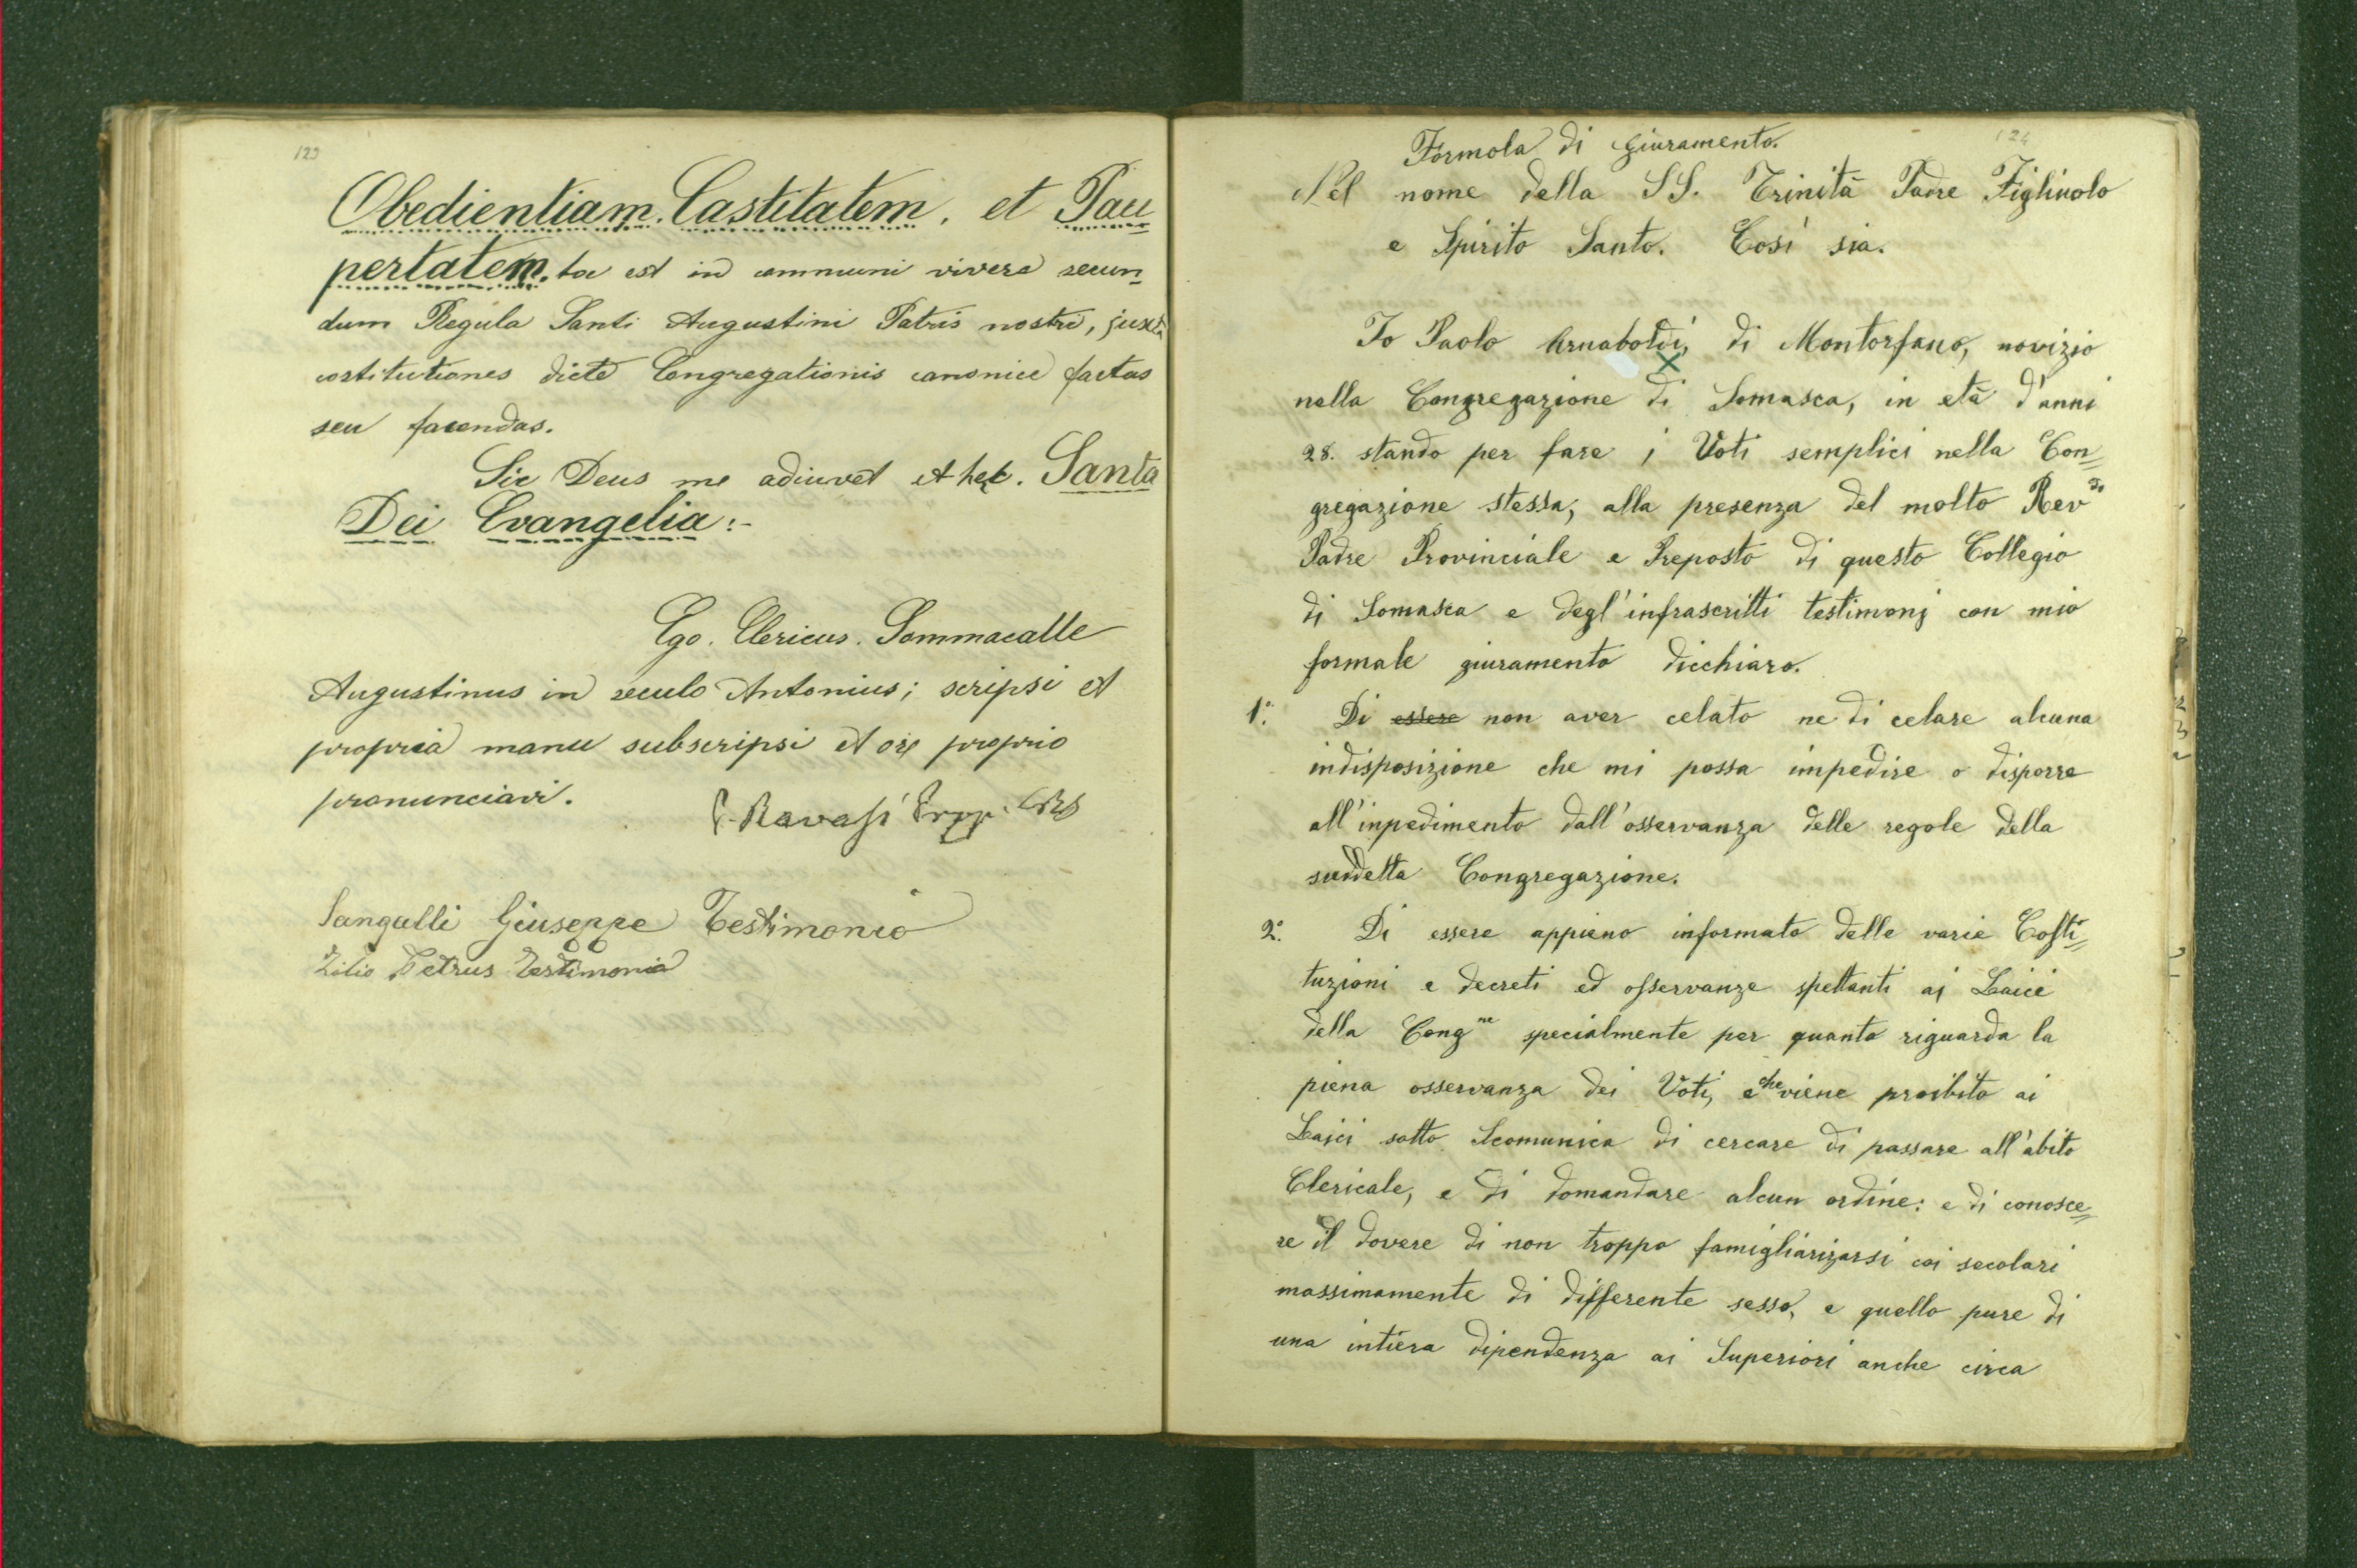 123
Obedientiam. Castitatem. et Pau
pertatem. hoc est in communi vivere secun
dum Regula Santi Augustini Patris nostri, juxta
costitutiones dicte Congregationis canonice factas
seu facendas.
Sic Deus me adiuvet et hec. Santa
Dei Evangelia:-
Ego. Clericus. Sommacalle
Augustinus in seculo Antonius; scripsi et
propria manu subscripsi et ore proprio
pronunciavi.
P. Ravasi Prep. CRS
Sangalli Giuseppe Testimonio
Zilio Petrus Testimonio
124
Formola di giuramento.
Nel nome della SS. Trinità Padre Figliuolo
e Spirito Santo. Così sia.
Io Paolo Arnaboldi, di Montorfano, novizio
nella Congregazione di Somasca, in età d'anni
28. stando per fare i Voti semplici nella Con=
gregazione stessa, alla presenza del molto Revdo
Padre Provinciale e Preposto di questo Collegio
di Somasca e degl'infrascritti testimonj con mio
formale giuramento dicchiaro.
1°. Di essere non aver celato ne di celare alcuna
indisposizione che mi possa impedire o disporre
all'inpedimento dall'osservanza delle regole della
suddetta Congregazione.
2°. Di essere appieno informato delle varie Costi=
tuzioni e decreti ed osservanze spettanti ai Laici
della Congne specialmente per quanto riguarda la
piena osservanza dei Voti, e che viene proibito ai
Laici sotto Scomunica di cercare di passare all'abito
Clericale, e di domandare alcun ordine: e di conosce=
re il dovere di non troppo famigliarizarsi coi secolari
massimamente di differente sesso, e quello pure di
una intiera dipendenza ai Superiori anche circa